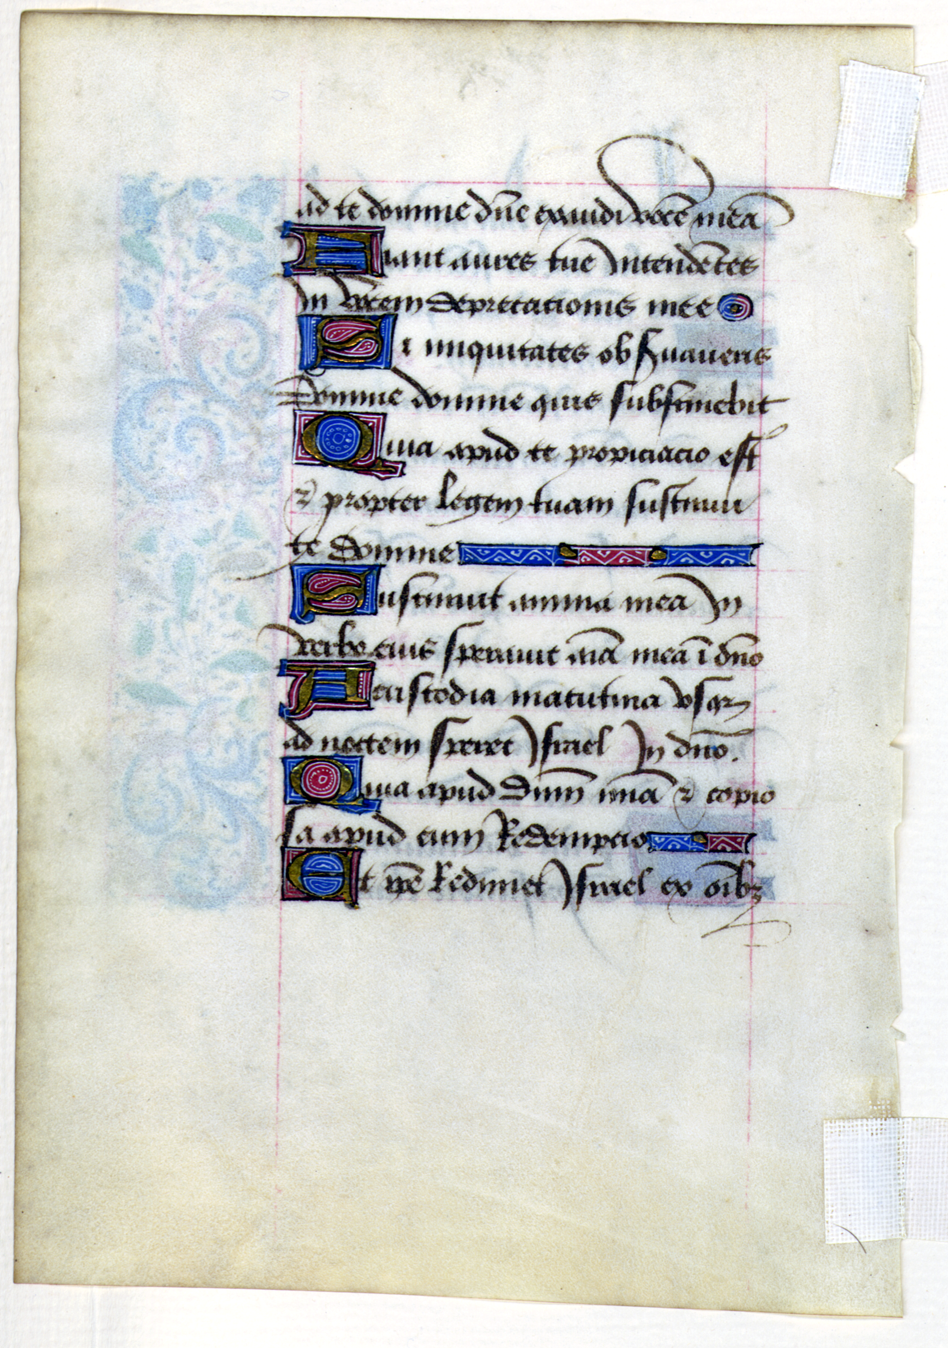 ad te domine dn̄e exaudi vocē meā
Fiant aures tue Intendētes
In vocem deprecacionis mee
Si iniquitates obseruaueris
Domine domine quis subst̄inebit
Quia apud te propiciacio est
⁊ propter legem tuam sustinui
te domine
Sustinuit anima mea In
verbo eius sperauit aīa meā ī dn̄o
A custodia matutina vsqꝫ
ad noctem speret Israel In dn̄o.
Quia apud Dn̄m mīa ⁊ copio
sa apud eum Redempcio
Et ip̄e Redimet Israel ex oībꝫ